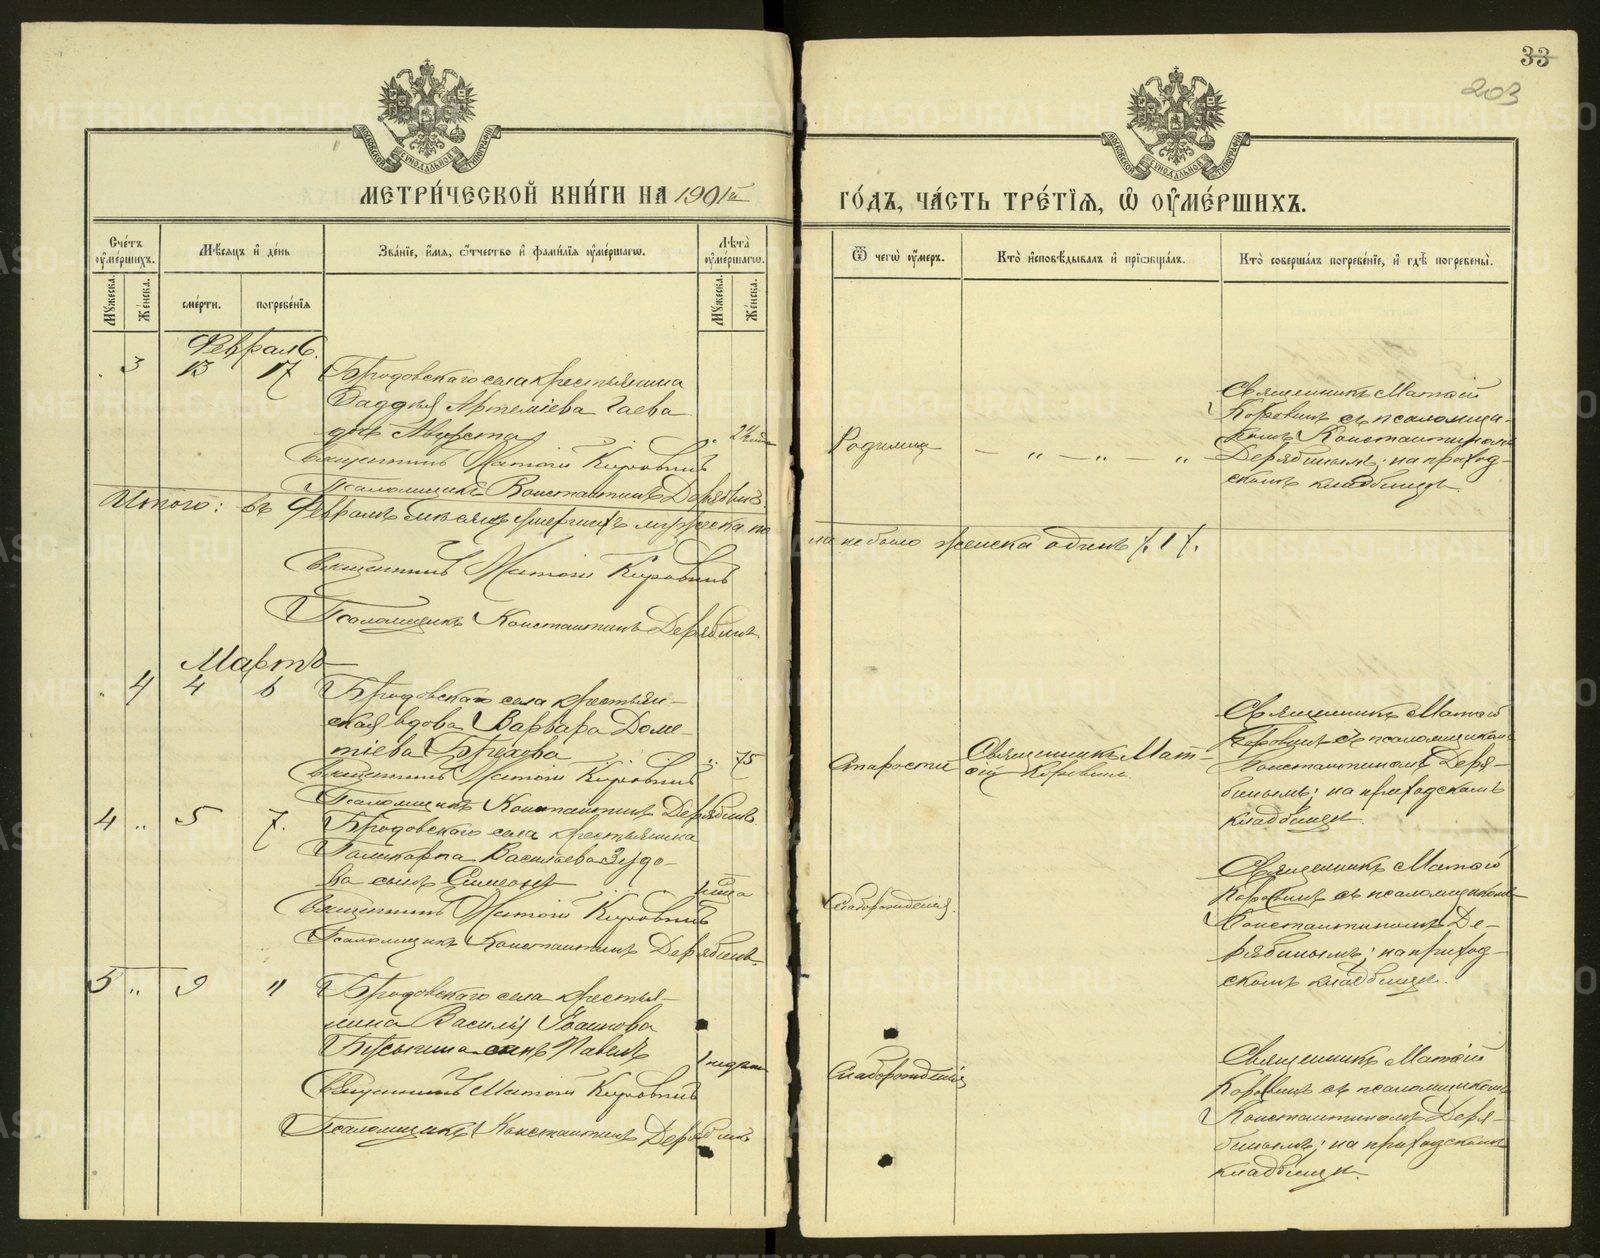 33
203
МЕТРИ́ЧЕСКОЙ КНИ́ГИ НА 1901й
ГО́ДЪ, ЧА́СТЬ ТРЕ́ТІЯ, Ѿ ОУ҆МЕ́РШИХЪ.
Сче́тъ оу҆ме́ршихъ.
Мѣ́сяцъ и҆ де́нь
Зва́ніе, и҆́мя, ѻ҆́тчество и҆ фами́лія оу҆ме́ршагѡ.
Лѣ́та оу҆ме́ршагѡ.
Ѿ чегѡ̀ оу҆́меръ.
Кто̀ и҆сповѣ́дывалъ и҆ прїѡбща́лъ.
Кто̀ соверша́лъ погребе́ніе, и҆ гдѣ̀ погребены̀.
Му́жеска.
Же́нска.
сме́рти.
погребе́нія
Му́жеска.
Же́нска.
Февраль.
3 13 17
Бродовскаго села крестьянина
Фаддея Артемiева Гаева
дочь Августа
Священникъ Матѳiй Коровинъ
Псаломщикъ Константинъ Дерябинъ
Родимца
Священникъ Матѳiй
Коровинъ съ псаломщи-
комъ Константиномъ
Дерябинымъ; на приход-
скомъ кладбищѣ.
Итого: въ Февралѣ мѣсяцѣ умершихъ мужеска по
ла не было женска одинъ /. 1 /.
Священникъ Матѳiй Коровинъ
Псаломщикъ Константинъ Дерябинъ
Мартъ
„ 4 4 6
Бродовскаго села крестьян-
ская вдова Варвара Доме-
тiева Брехова
„ 75
Священникъ Матѳiй Коровинъ
Псаломщикъ Константинъ Дерябинъ
Старости
Священникъ Мат-
ѳiй Коровинъ
Священникъ Матѳiй
Коровинъ съ псаломщикомъ
Константиномъ Деря-
бинымъ; на приходскомъ
кладбищѣ.
4 „ 5 7.
Бродовскаго села крестьянина
Поликарпа Васильева Зудо-
ва сынъ Симеонъ
Священникъ Матѳiй Коровинъ
Псаломщикъ Константинъ Дерябинъ
Слаборожденiя.
Священникъ Матѳiй
Коровинъ съ псаломщикомъ
Константиномъ Де-
рябинымъ; на приход-
скомъ кладбищѣ.
5 „ 9 11
Бродовскаго села крестья-
нина Василiя Iоаннова
Бусыгина сынъ Павелъ
Священникъ Матѳiй Коровинъ
Псаломщикъ Константинъ Дерябинъ
Слаборожденiя
Священникъ Матѳiй
Коровинъ съ псаломщикомъ
Константиномъ Деря-
бинымъ; на приходскомъ
кладбищѣ.
METRIKI.GASO-URAL.RU